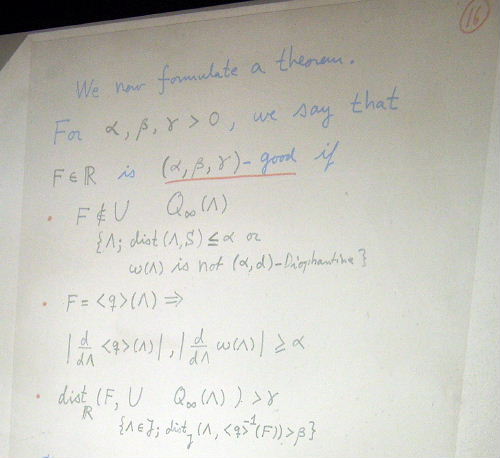 16
We now formulate a theorem.
For α, β, γ > 0, we say that
F ∈ ℝ is (α, β, γ)-good if
• F ∉ ∪ Q∞(Λ)
{Λ; dist(Λ,S) ≤ α or
ω(Λ) is not (α,d)-Diophantine}
• F = <q>(Λ) ⇒
|d/dΛ <q>(Λ)|, |d/dΛ ω(Λ)| ≥ α
• dist_ℝ (F, ∪ Q∞(Λ)) > γ
{Λ∈J; dist_J (Λ, <q>⁻¹(F)) > β}